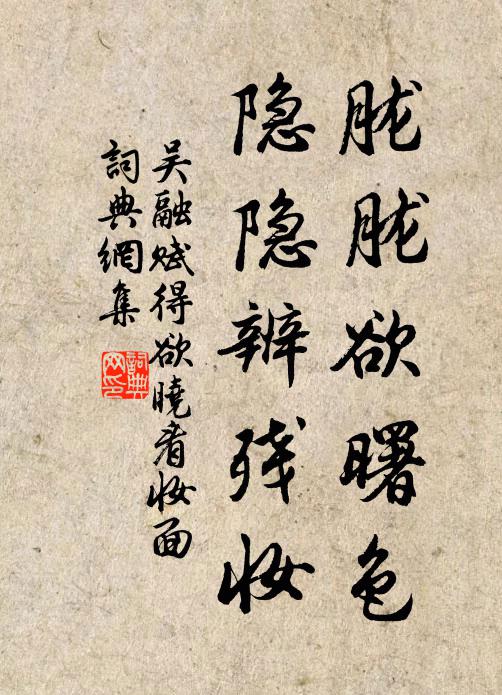 胧胧欲曙色
隐隐辨残妆
吴融赋得欲曉看妆面
詞典網集
詞典
网印